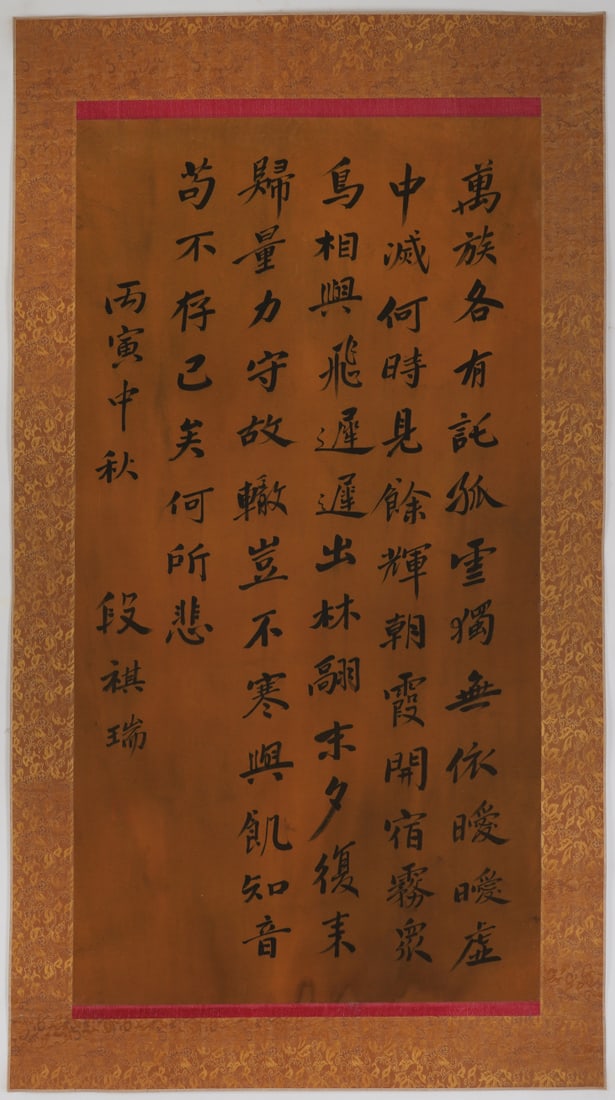 萬族各有託孤雲獨無依曖曖虛
中滅何時見餘輝朝霞開宿霧眾
鳥相與飛遲遲出林翮未夕復来
歸量力守故轍豈不寒與飢知音
苟不存已矣何所悲
丙寅中秋 段祺瑞